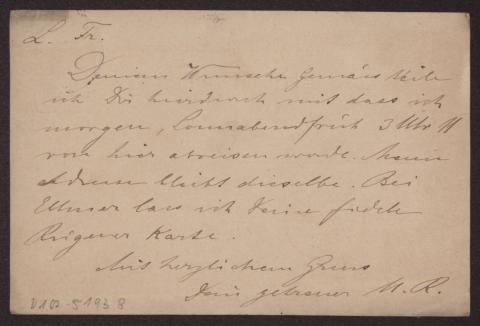 L. Fr.
Deinem Wunsche gemäss theile
ich Dir hierdurch mit dass ich
morgen, Sonnabend früh 3 Uhr 11
von hier abreisen werde. Meine
Adresse bleibt dieselbe. Bei
Ellmer las ich Deine fidele
Rigener Karte.
Mit herzlichem Gruss
Dein getreuer M. R.
V107-5193 8